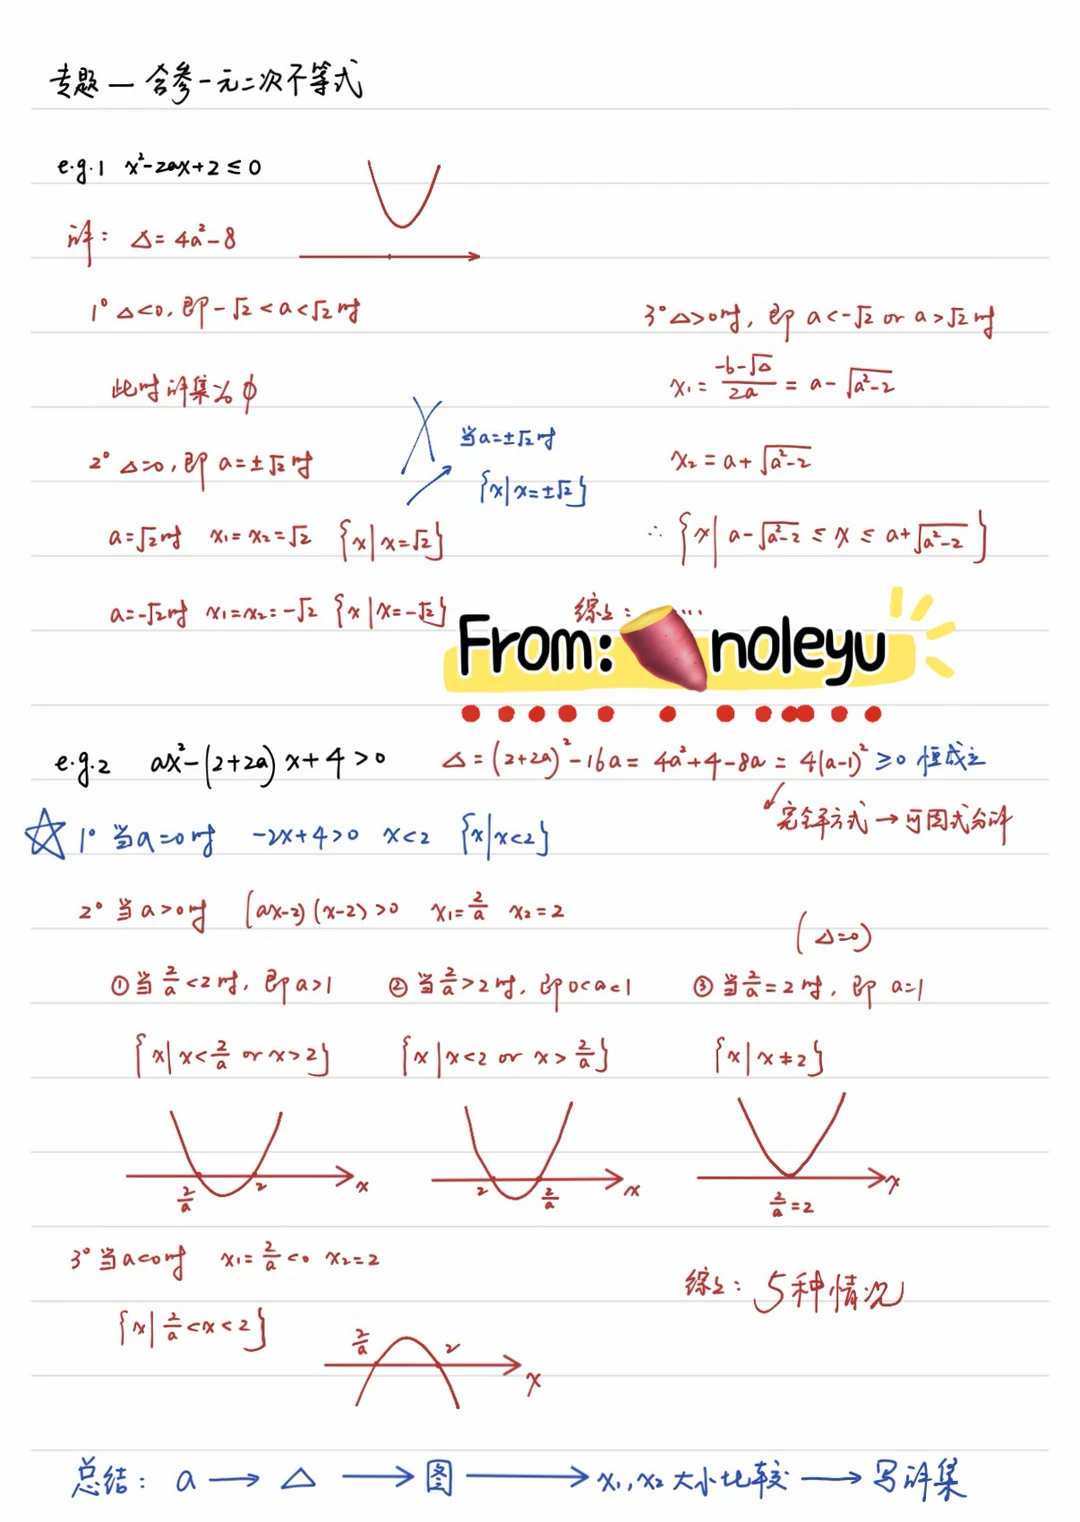 专题一 含参一元二次不等式
e.g.1 x²-2ax+2≤0
解: Δ=4a²-8
1° Δ<0, 即-√2<a<√2时
此时解集为∅
2° Δ=0, 即 a=±√2时
a=√2时 x₁=x₂=√2 {x|x=√2}
a=-√2时 x₁=x₂=-√2 {x|x=-√2}
当a=±√2时
{x|x=±√2}
3° Δ>0时, 即 a<-√2 or a>√2时
x₁=(-b-√Δ)/2a = a-√(a²-2)
x₂=a+√(a²-2)
∴ {x|a-√(a²-2) ≤ x ≤ a+√(a²-2)}
综上: ……
From: noleyu
e.g.2 ax²-(2+2a)x+4>0 Δ=(2+2a)²-16a= 4a²+4-8a = 4(a-1)² ≥0 恒成立
完全平方式→可因式分解
☆ 1° 当a=0时 -2x+4>0 x<2 {x|x<2}
2° 当a>0时 (ax-2)(x-2)>0 x₁=2/a x₂=2
(Δ=0)
①当2/a<2时, 即a>1 ②当2/a>2时, 即0<a<1 ③当2/a=2时, 即 a=1
{x|x<2/a or x>2} {x|x<2 or x>2/a} {x|x≠2}
2/a 2 x 2 2/a x 2/a=2 x
3° 当a<0时 x₁=2/a<0 x₂=2
{x|2/a<x<2}
2/a 2 x
综上: 5种情况
总结: a → Δ → 图 → x₁,x₂大小比较 → 写解集